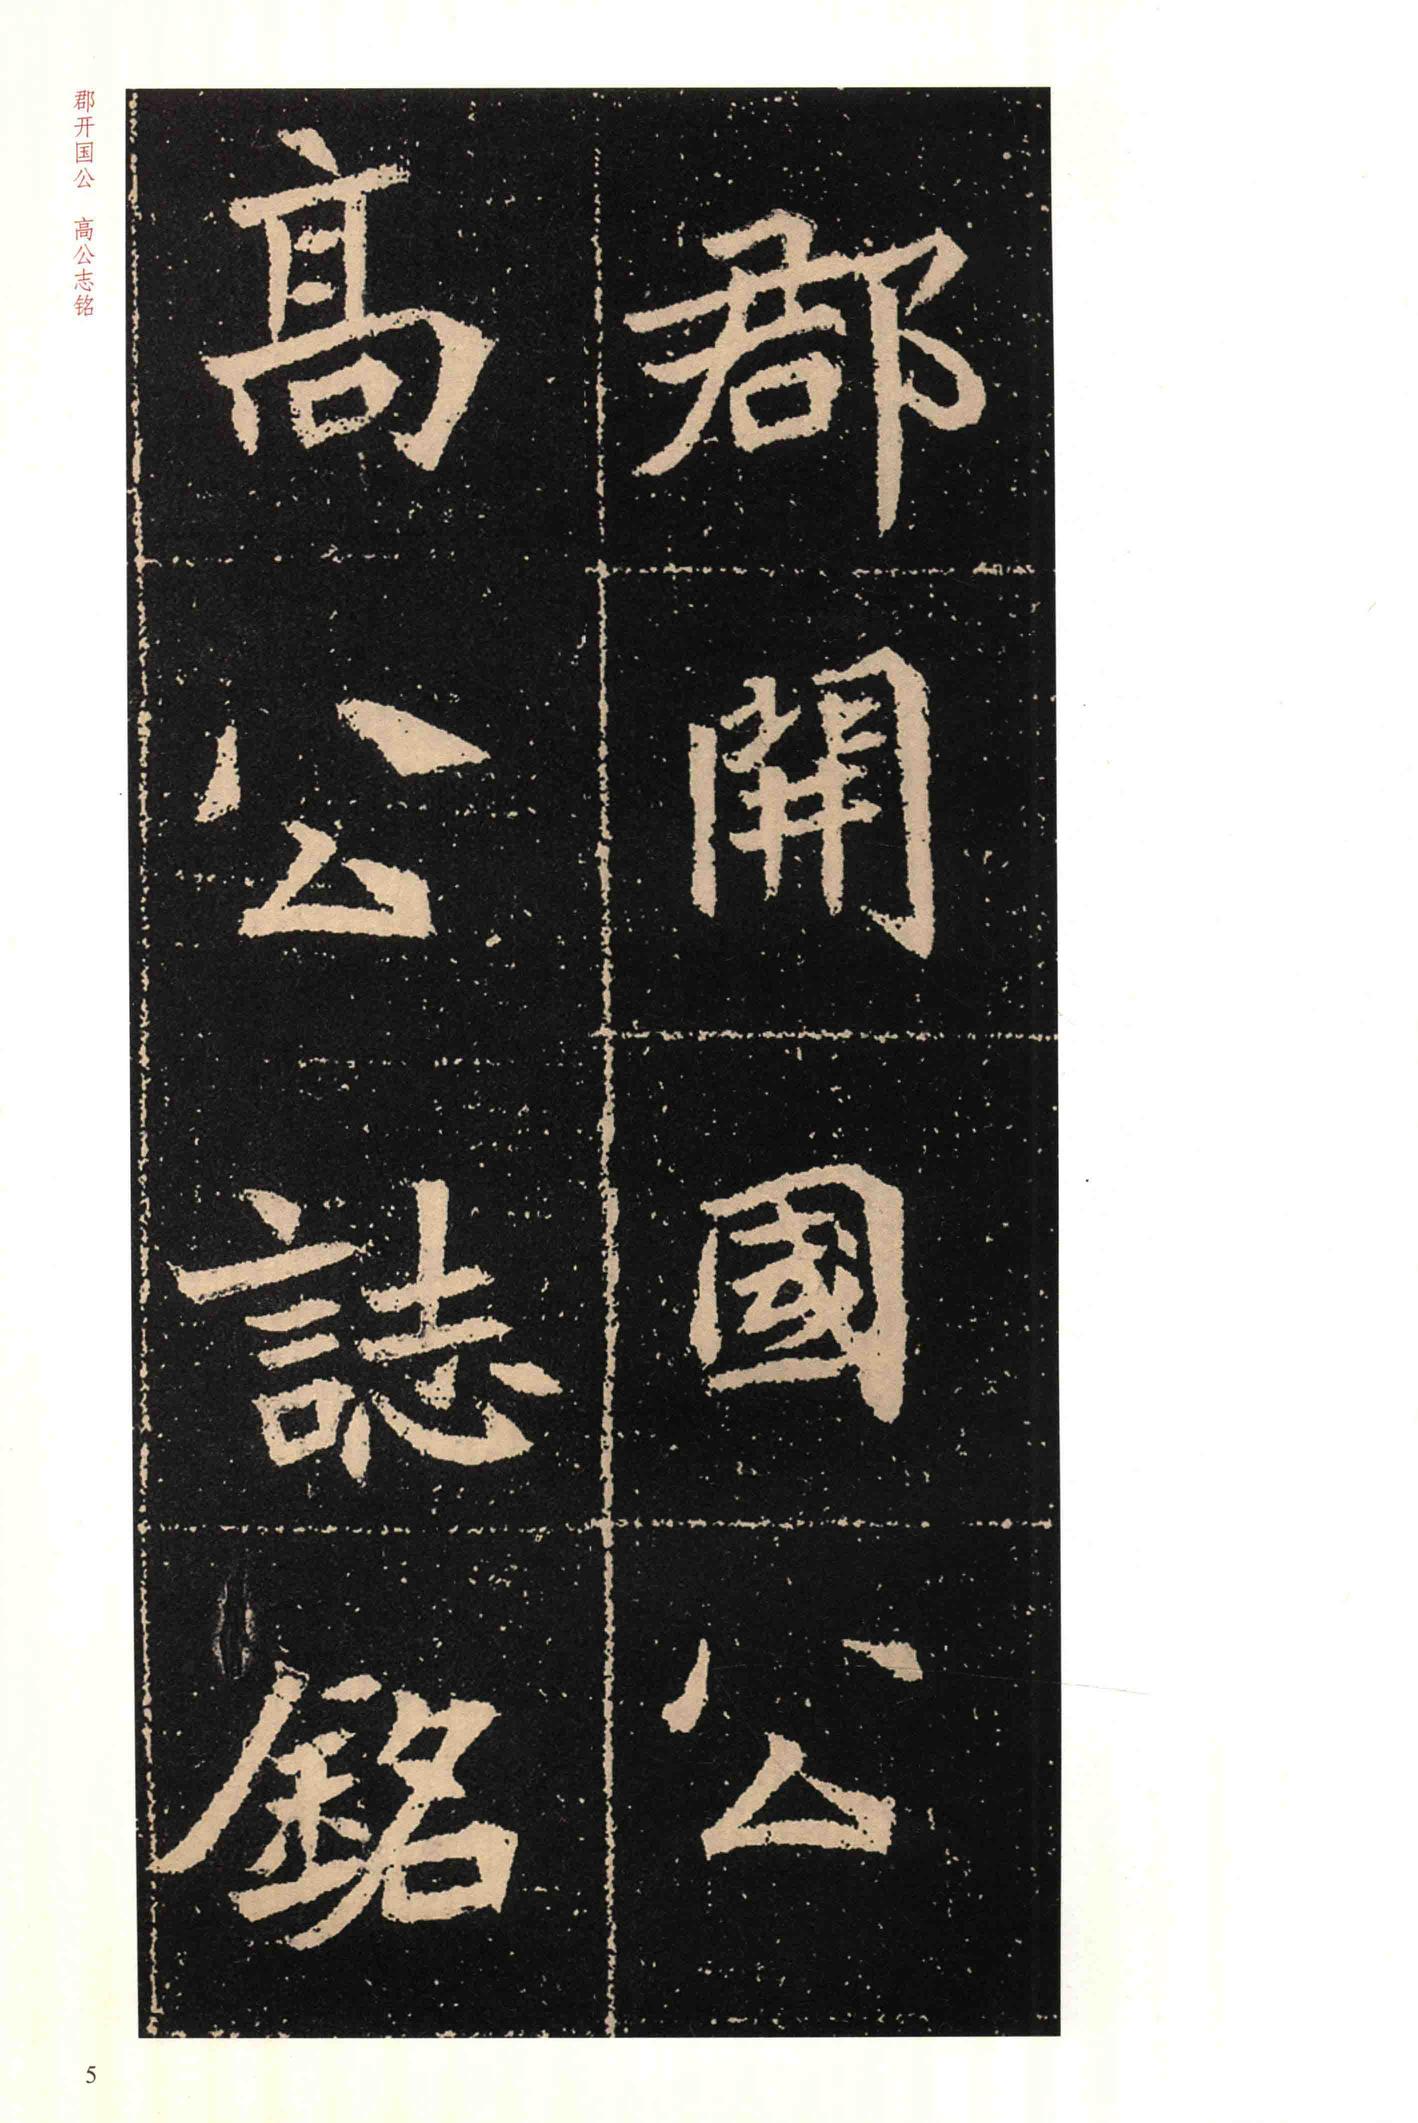 郡開國公
高公誌銘
郡开国公　高公志铭
5